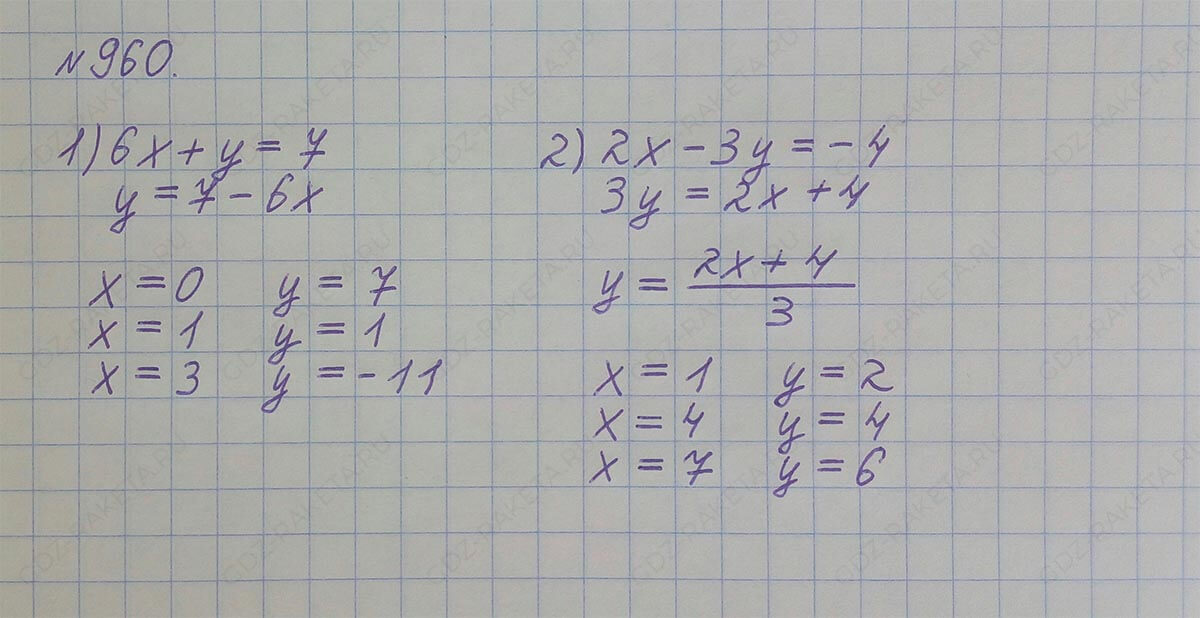 №960.
1) 6x + y = 7
y = 7 - 6x
x = 0 y = 7
x = 1 y = 1
x = 3 y = -11
2) 2x - 3y = -4
3y = 2x + 4
y = (2x + 4)/3
x = 1 y = 2
x = 4 y = 4
x = 7 y = 6
GDZ-RAKETA.RU